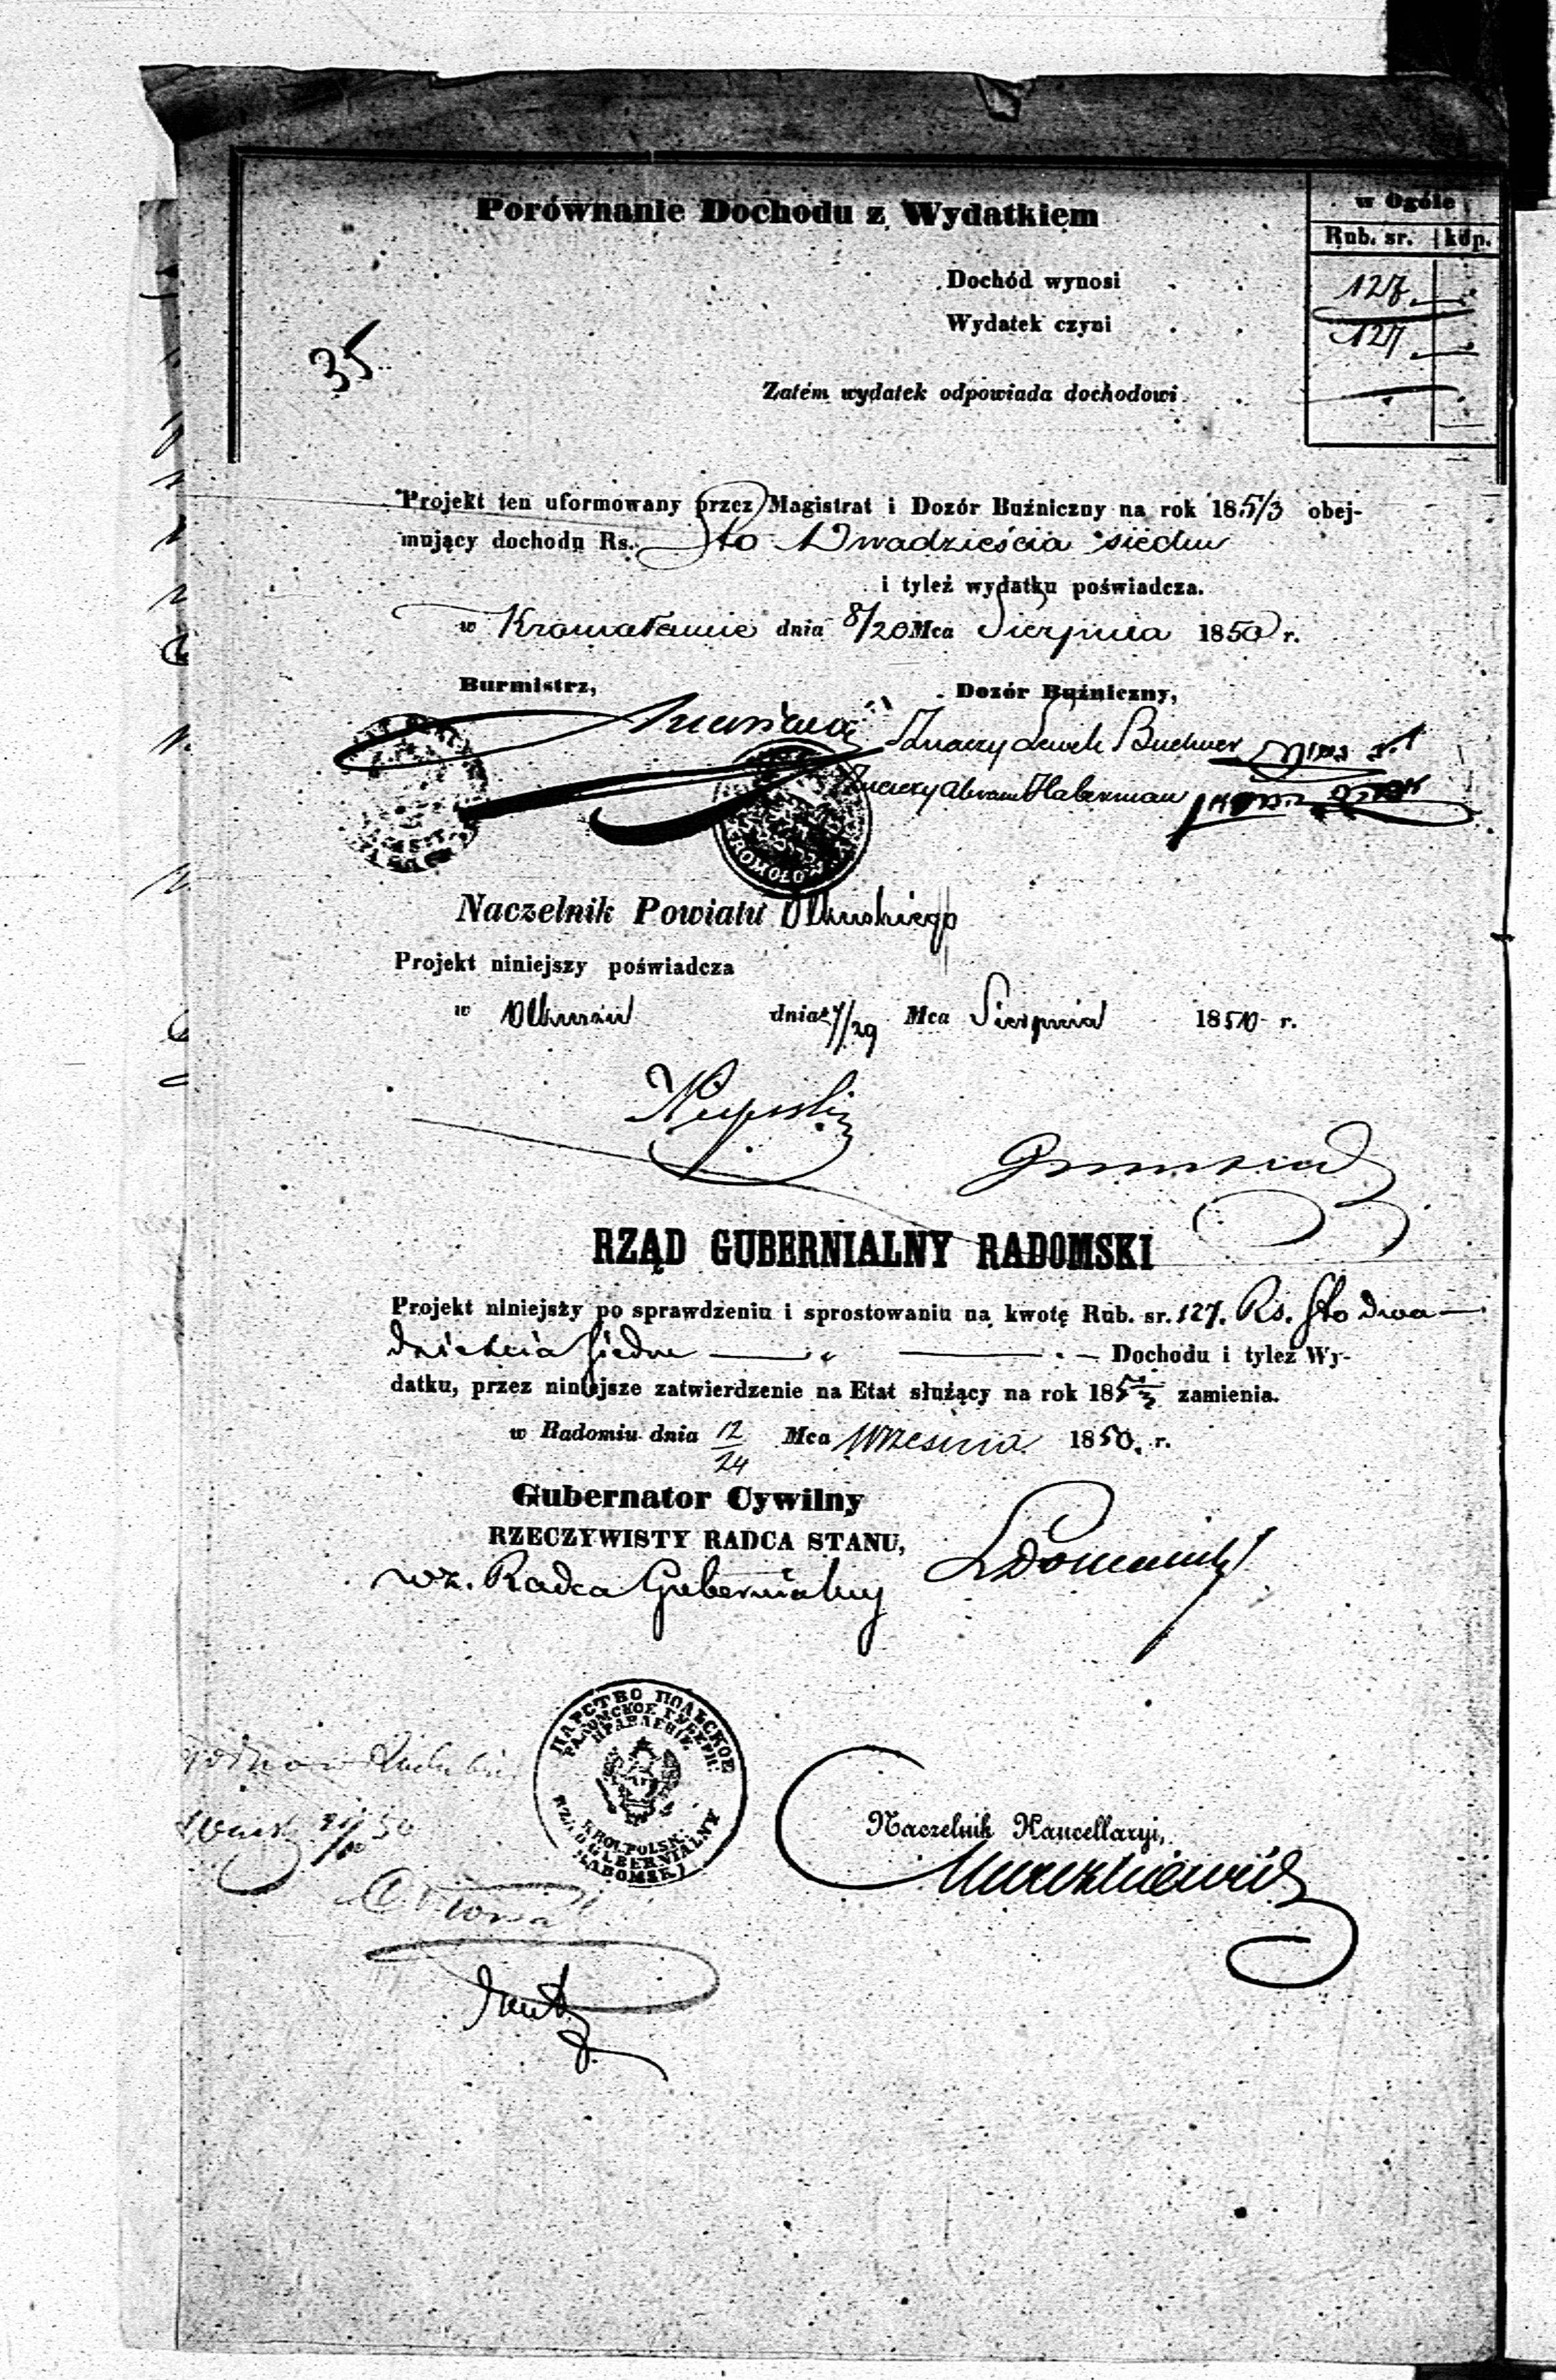 Porównanie Dochodu z Wydatkiem
w Ogóle
Rub. sr. kop.
Dochód wynosi 127
Wydatek czyni 127
35
Zatém wydatek odpowiada dochodowi
Projekt ten uformowany przez Magistrat i Dozór Buźniczny na rok 185 1/3 obej-
mujący dochodu Rs. Sto Dwadzieścia siedm
i tyleż wydatku poświadcza.
w Kromołowie dnia 8/20 Mca Sierpnia 1850 r.
Burmistrz,
Dozór Buźniczny,
Lewek Buchner
Abram Haberman
KROMOŁOW
Naczelnik Powiatu Olkuskiego
Projekt niniejszy poświadcza
w Olkuszu dnia 17/29 Mca Sierpnia 1850 r.
RZĄD GUBERNIALNY RADOMSKI
Projekt niniejszy po sprawdzeniu i sprostowaniu na kwotę Rub. sr. 127. Rs. Sto dwa-
dzieścia siedm Dochodu i tyleż Wy-
datku, przez niniejsze zatwierdzenie na Etat służący na rok 185 1/3 zamienia.
w Radomiu dnia 12/24 Mca Września 1850. r.
Gubernator Cywilny
RZECZYWISTY RADCA STANU,
wz. Radca Gubernialny
ЦАРСТВО ПОЛЬСКОЕ
РАДОМСКОЕ ГУБЕРН:
ПРАВЛЕНІЕ
KROL: POLSK:
RZĄD GUBERNIALNY
RADOMSKI
Naczelnik Kancellaryi,